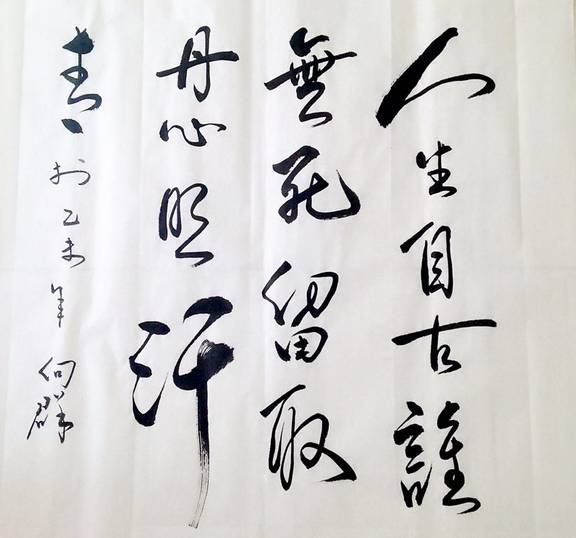 人生自古誰
無死留取
丹心照汗
青 於乙未年 向群